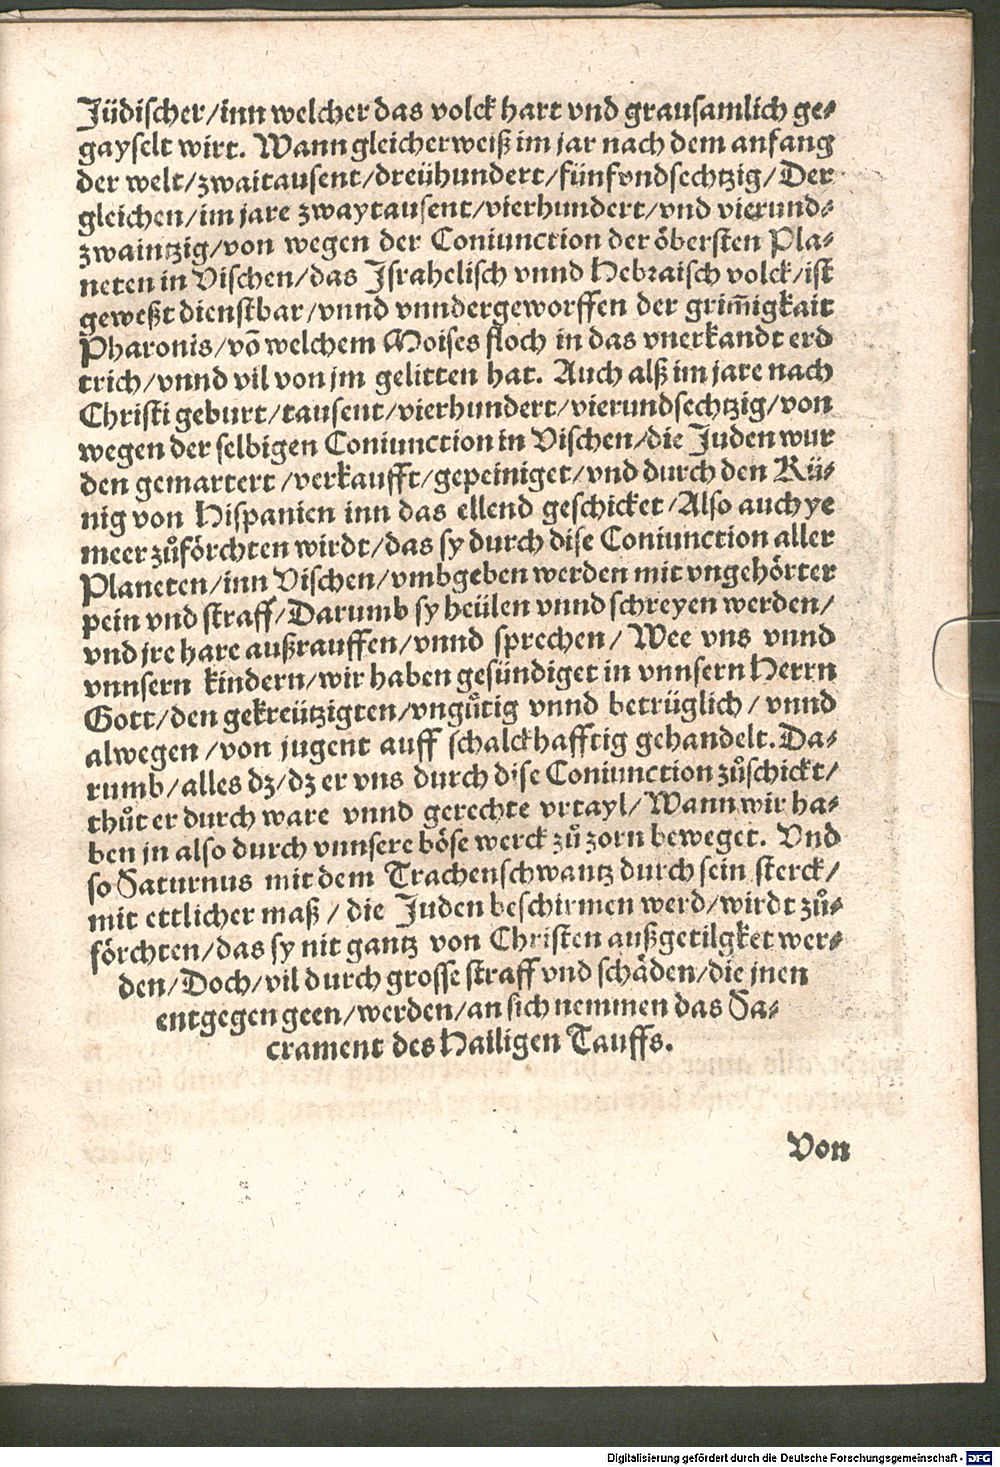 Jüdischer/inn welcher das volck hart vnd grausamlich ge-
gayselt wirt. Wann gleicherweiß im jar nach dem anfang
der welt/zwaitausent/dreühundert/fünfvndsechtzig/Der
gleichen/im jare zwaytausent/vierhundert/vnd vierund-
zwaintzig/von wegen der Coniunction der öbersten Pla-
neten in Vischen/das Israhelisch vnnd Hebraisch volck/ist
geweßt dienstbar/vnnd vnndergeworffen der grim̃igkait
Pharonis/võ welchem Moises floch in das vnerkandt erd
trich/vnnd vil von jm gelitten hat. Auch alß im jare nach
Christi geburt/tausent/vierhundert/vierundsechtzig/von
wegen der selbigen Coniunction in Vischen/die Juden wur
den gemartert/verkaufft/gepeiniget/vnd durch den Kü-
nig von Hispanien inn das ellend geschicket/Also auch ye
meer zůförchten wirdt/das sy durch dise Coniunction aller
Planeten/inn Vischen/vmbgeben werden mit vngehörter
pein vnd straff/Darumb sy heülen vnnd schreyen werden/
vnd jre hare außrauffen/vnnd sprechen/Wee vns vnnd
vnnsern kindern/wir haben gesündiget in vnnsern Herrn
Gott/den gekreützigten/vngütig vnnd betrüglich/vnnd
alwegen/von jugent auff schalckhafftig gehandelt. Da-
rumb/alles dz/dz er vns durch dise Coniunction zůschickt/
thůt er durch ware vnnd gerechte vrtayl/Wann wir ha-
ben jn also durch vnnsere böse werck zů zorn beweget. Vnd
so Saturnus mit dem Trachenschwantz durch sein sterck/
mit ettlicher maß/die Juden beschirmen werd/wirdt zů-
förchten/das sy nit gantz von Christen außgetilgket wer-
den/Doch/vil durch grosse straff vnd schäden/die jnen
entgegen geen/werden/an sich nemmen das Sa-
crament des Hailigen Tauffs.
Von
Digitalisierung gefördert durch die Deutsche Forschungsgemeinschaft - DFG